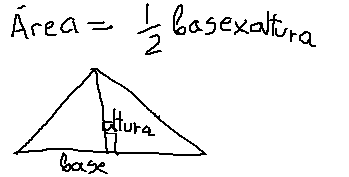 Área = 1/2 basexaltura
altura
base